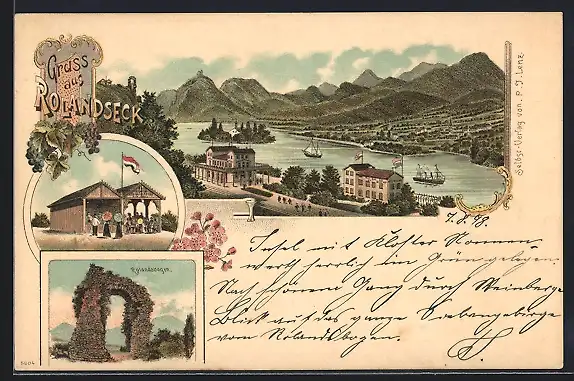 Gruss
aus
ROLANDSECK
Selbst-Verlag von P. J. Lenz.
Rolandsbogen.
5604
7.8.98.
Insel mit Kloster Nonnen-
werth herrlich im Grünen gelegen.
Nach schönem Gang durch Weinberge
Blick auf das ganze Siebengebirge
vom Rolandsbogen.